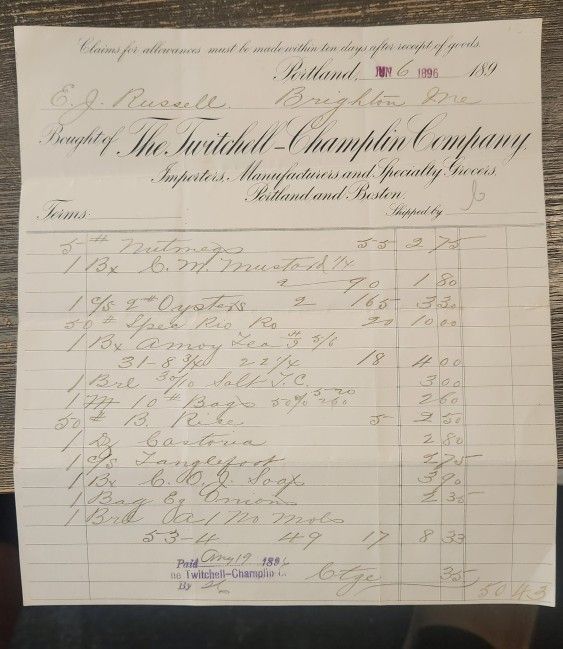 Claims for allowances must be made within ten days after receipt of goods.
Portland, JUN 6 1896 189
E. J. Russell. Brighton Me
Bought of The Twitchell-Champlin Company,
Importers, Manufacturers and Specialty Grocers,
Portland and Boston.
Terms: Shipped by
5 # Nutmegs 55 2 75
1 Bx C. M. Mustard 1/4
2 90 1 80
1 c/s 2# Oysters 2 165 3 30
50 # Spec Rio Ro 20 10 00
1 Bx Amoy Tea
31-8 3/4 22 1/4 18 4 00
1 Brl Salt 3 00
1 M 10 # Bags 50% 2 60
50 # B. Rice 5 2 50
1 Dz Castoria 2 80
1 c/s Tanglefoot 2 75
1 Bx C. O. J. Soap 3 90
1 Bag Eg Onions 2 35
1 Brl No Mols
53-4 49 17 8 33
Paid Aug 19 1896
he Twitchell-Champlin C.
By
Ctge 35
50 43